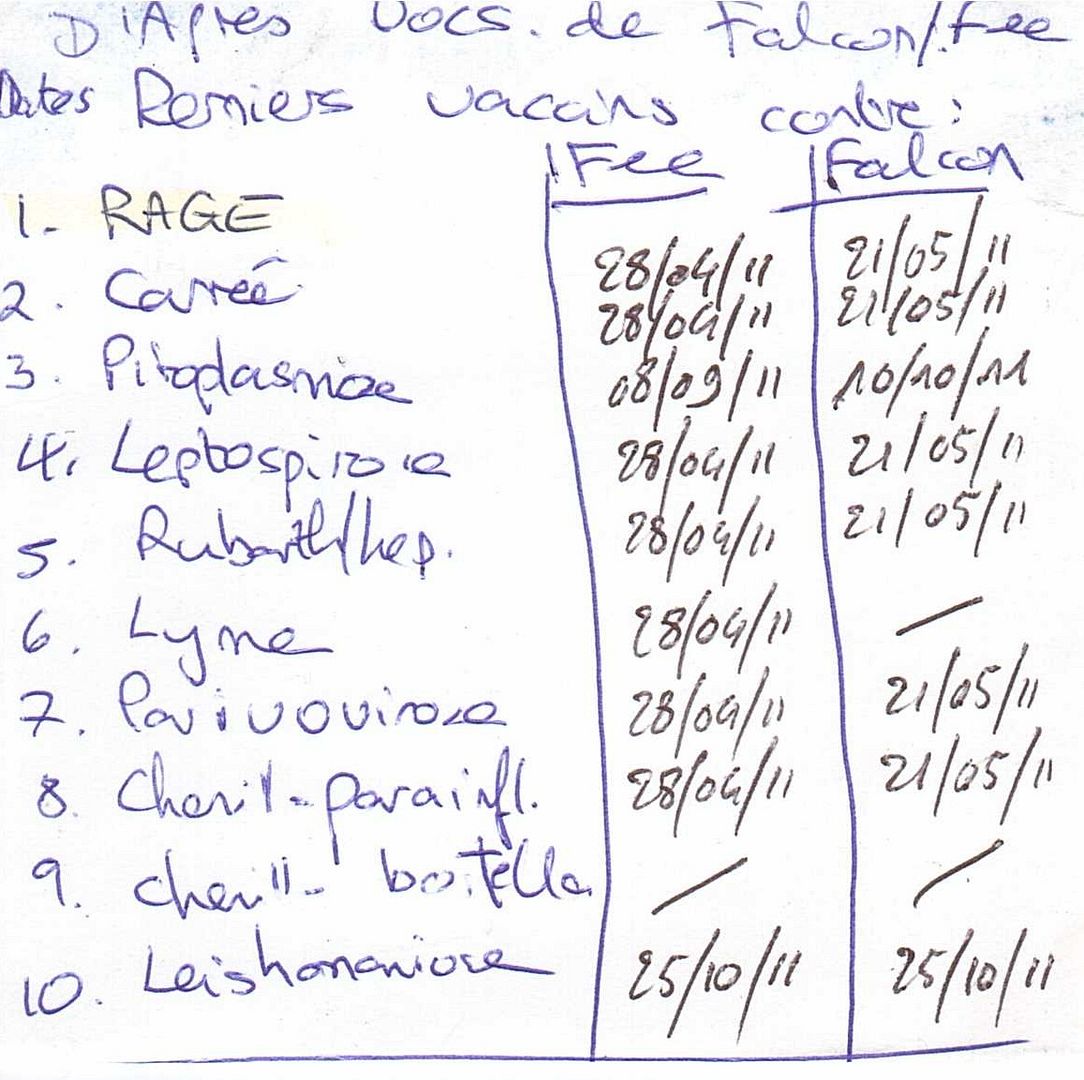 D'Après Docs. de Falcon/Fee
Dates Derniers vaccins contre:
Fee Falcon
1. RAGE 28/04/11 21/05/11
2. Carréé 28/04/11 21/05/11
3. Piroplasmose 08/09/11 10/10/11
4. Leptospirose 28/04/11 21/05/11
5. Rubarth/hep. 28/04/11 21/05/11
6. Lyme 28/04/11 —
7. Parvovirose 28/04/11 21/05/11
8. Chenil-parainfl. 28/04/11 21/05/11
9. chenil - — —
10. Leishmaniose 25/10/11 25/10/11